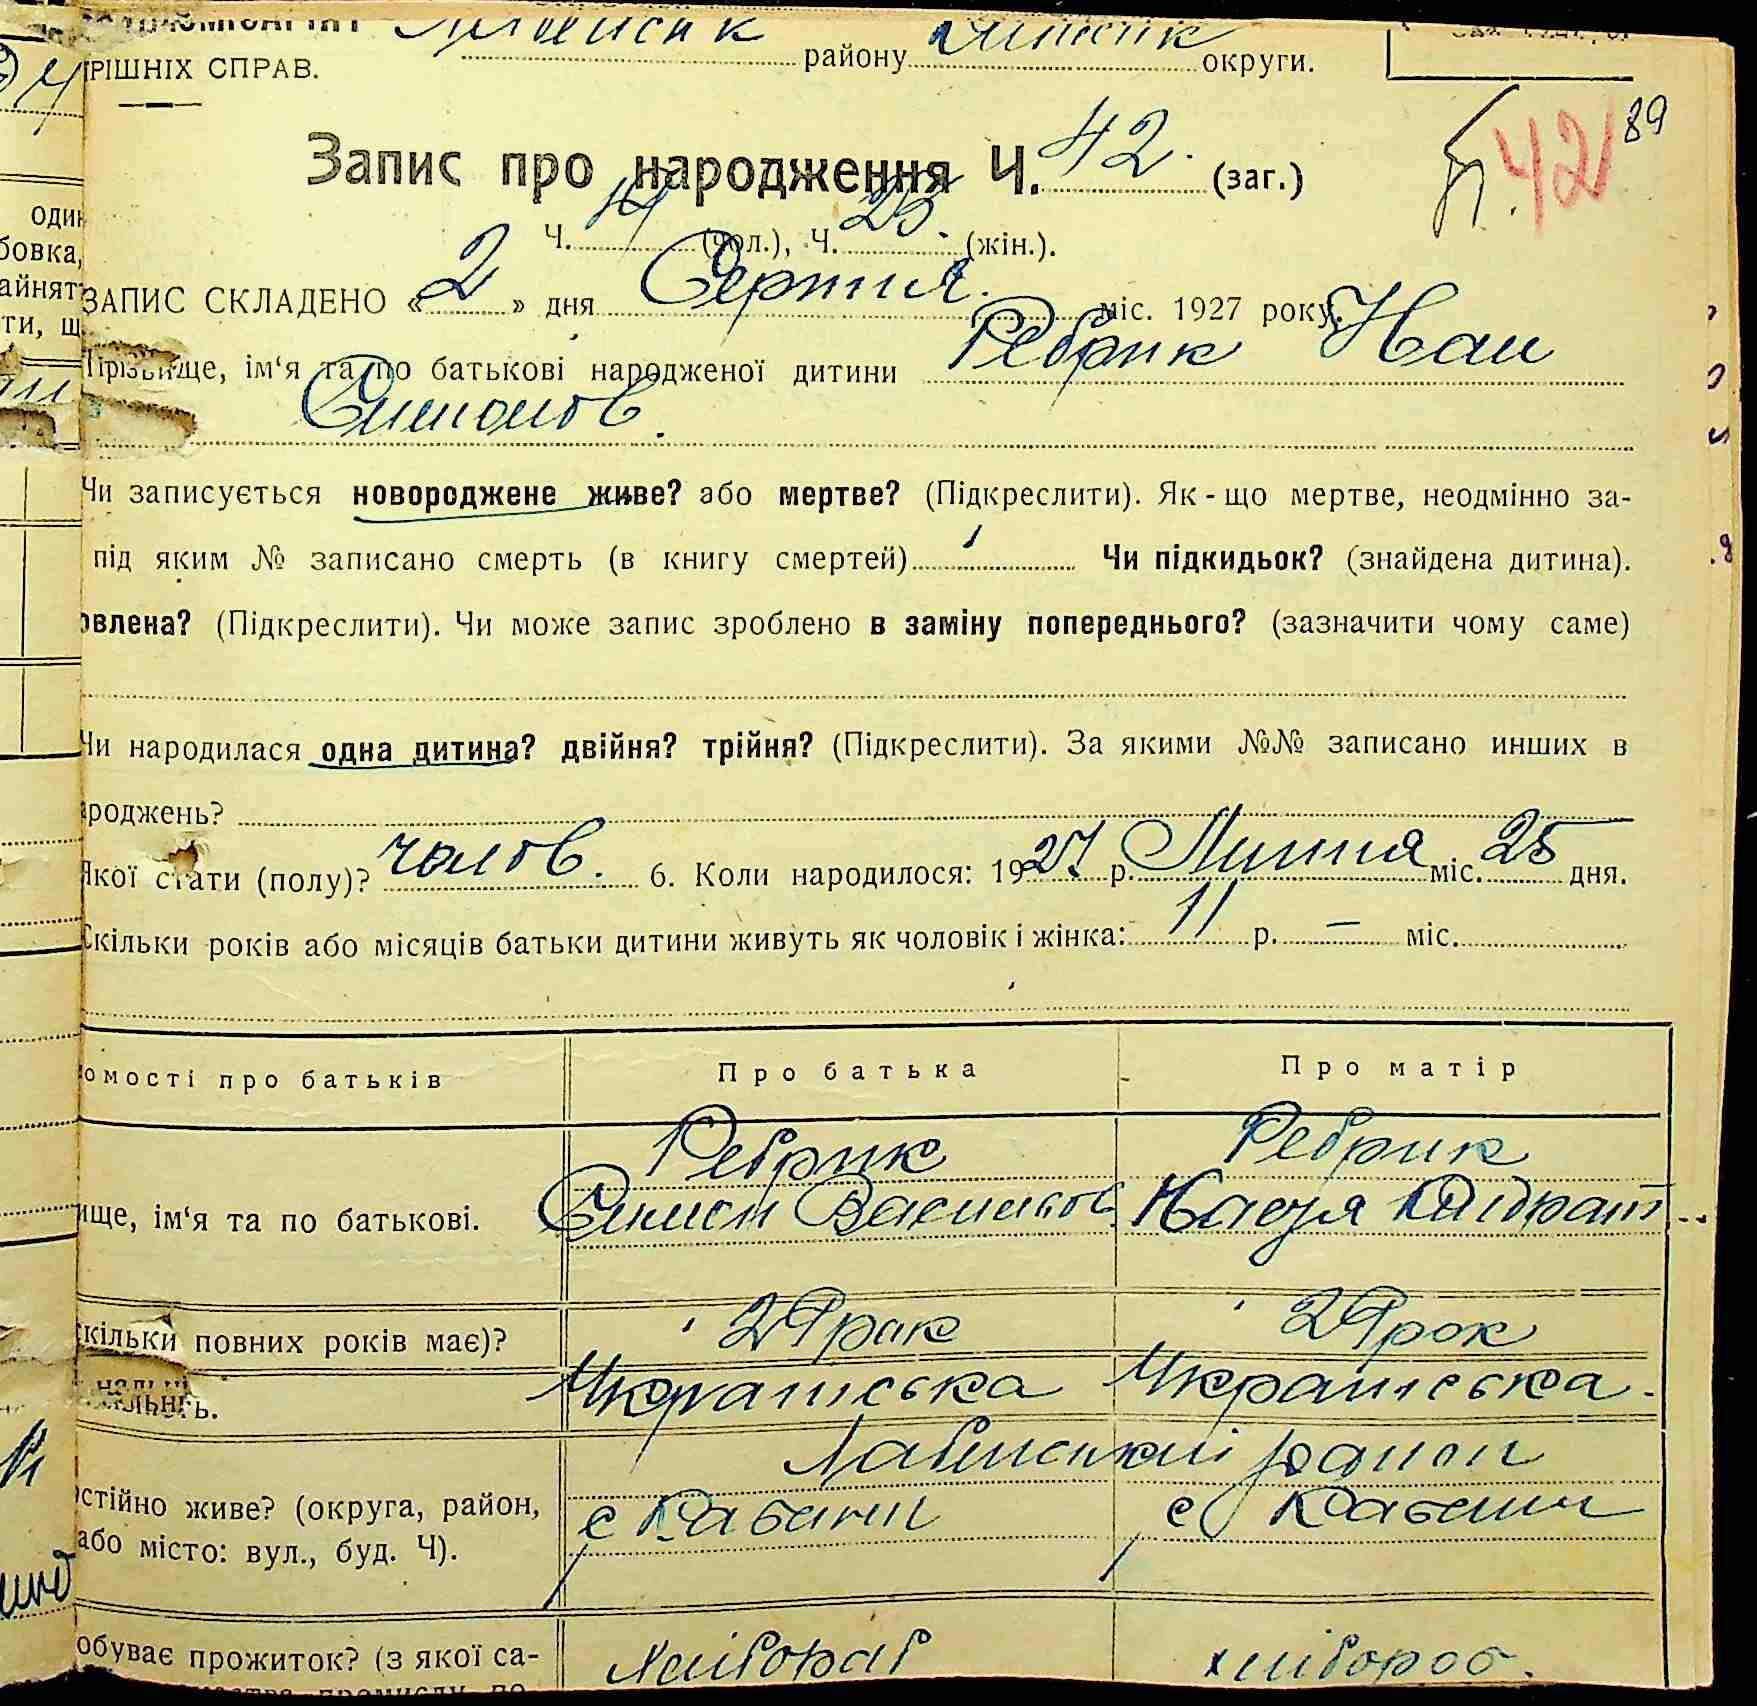 РІШНІХ СПРАВ. району округи.
Запис про народження Ч. 42. (заг.) 42 89
Ч. (чол.), Ч. 25. (жін.).
ЗАПИС СКЛАДЕНО « 2 » дня Серпня. міс. 1927 року.
Прізвище, ім‘я та по батькові народженої дитини Ребрик Иван
Симонов.
Чи записується новороджене живе? або мертве? (Підкреслити). Як-що мертве, неодмінно за-
під яким № записано смерть (в книгу смертей) Чи підкидьок? (знайдена дитина).
овлена? (Підкреслити). Чи може запис зроблено в заміну попереднього? (зазначити чому саме)
Чи народилася одна дитина? двійня? трійня? (Підкреслити). За якими №№ записано инших в
ароджень?
Якої стати (полу)? чолов. 6. Коли народилося: 1927 р. Липня міс. 25 дня.
Скільки років або місяців батьки дитини живуть як чоловік і жінка: 11 р. – міс.
омості про батьків Про батька Про матір
Ребрик Ребрик
ище, ім‘я та по батькові. Симон Василов. Настя Кіндрат
скільки повних років має)? 29 рок 29 рок
Українська Українська.
район
остійно живе? (округа, район, с с
або місто: вул., буд. Ч).
обуває прожиток? (з якої са- хлібороб хлібороб.